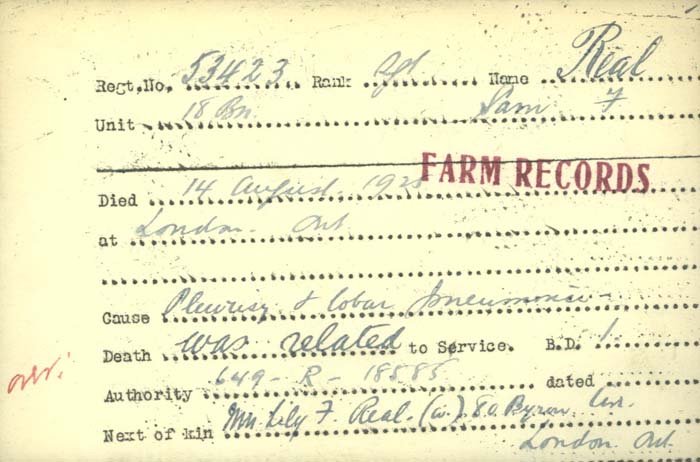 Regt.No. 53423 Rank Sgt Name Real
Unit 18 Bn Sam F
FARM RECORDS
Died 14 August. 1928
at London. Ont
Cause Pleurisy & lobar pneumonia
Death was related to Service. B.D. 1.
over.
Authority 649-R-18585 dated
Next of kin Mrs Lily F. Real. (w). 80 Byron Ave.
London Ont